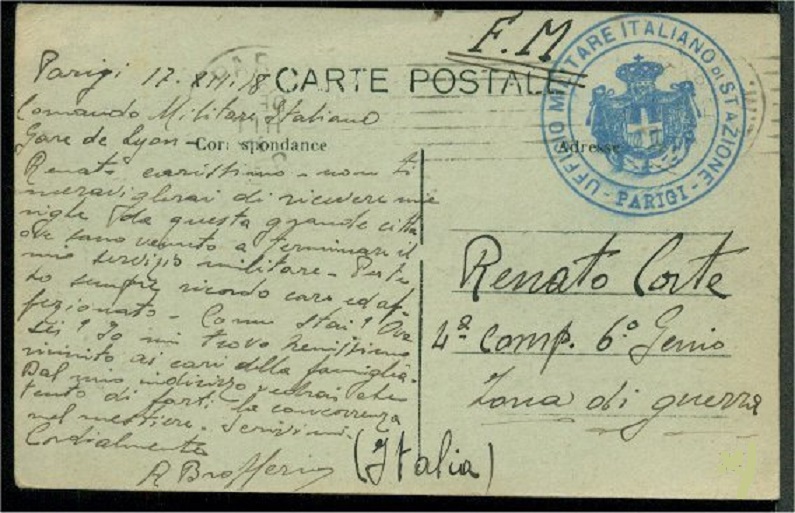 F. M
CARTE POSTALE
UFFICIO MILITARE ITALIANO DI STAZIONE - PARIGI -
Parigi 17. XII. 18
Comando Militare Italiano
Gare de Lyon -
Correspondance
Adresse
Renato carissimo - non ti
meraviglierai di ricevere mie
righe da questa grande città
ove sono venuto a terminare il
mio servizio militare - Per te
ho sempre ricordo caro ed af-
fezionato - Come stai? Ove
sei? Io mi trovo benissimo
riunito ai cari della famiglia.
Dal mio indirizzo vedrai che
tento di farti la concorrenza
nel mestiere. Scrivimi.
Cordialmente
A Brofferio
Renato Corte
4a Comp. 6o Genio
Zona di guerra
(Italia)